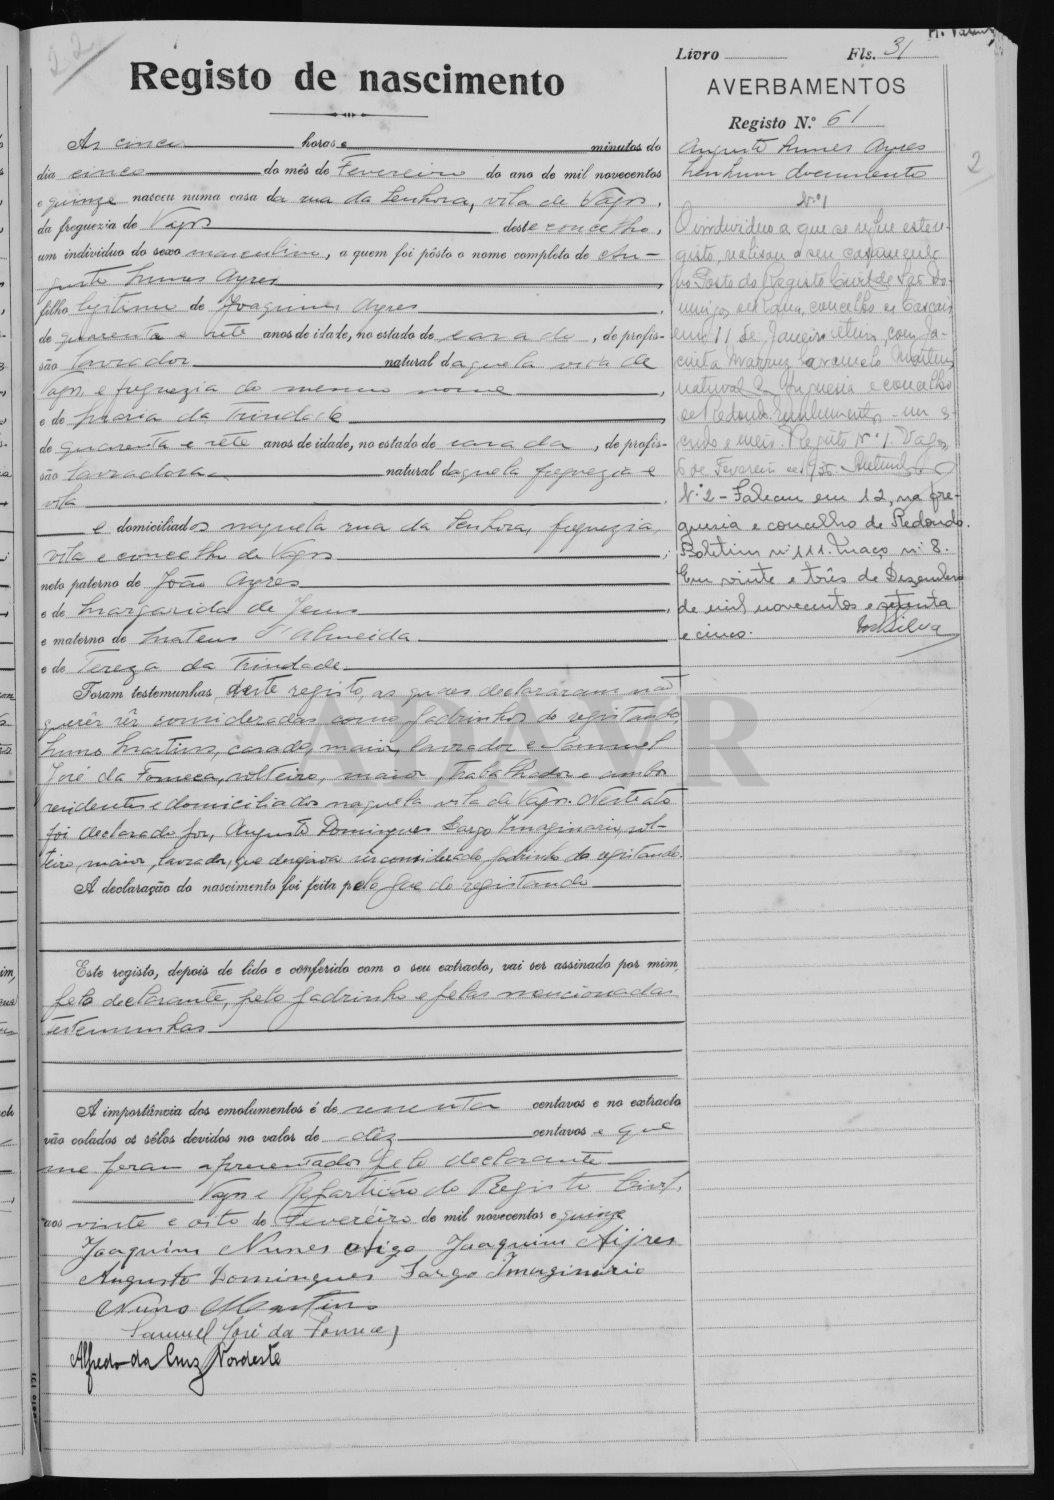 22
Livro Fls. 31
Registo de nascimento
AVERBAMENTOS
Registo N.º 61
Augusto Nunes Ayres
Nenhum documento
2
Às cinco horas e minutos do
dia cinco do mês de Fevereiro do ano de mil novecentos
e quinze nasceu numa casa da rua da Senhora, vila de Vagos,
da freguezia de Vagos deste concelho,
um individuo do sexo masculino, a quem foi pôsto o nome completo de Au-
gusto Nunes Ayres
filho legitimo de Joaquim Ayres
de quarenta e sete anos de idade, no estado de casado, de profis-
são lavrador natural daquela vila de
Vagos e freguezia do mesmo nome
e de Maria da Trindade
de quarenta e sete anos de idade, no estado de casada, de profis-
são lavradora natural daquela freguezia e
vila
e domiciliados naquela rua da Senhora, freguezia,
vila e concelho de Vagos
neto paterno de João Ayres
e de Margarida de Jesus
e materno de Mateus d'Almeida
e de Tereza da Trindade
Foram testemunhas deste registo, as quaes declararam não
querêr sêr consideradas como padrinhos do registando,
Nuno Martins, casado, maior, lavrador e Samuel
José da Fonseca, solteiro, maior, trabalhador e ambos
residentes e domiciliados naquela vila de Vagos. Neste ato
foi declarado por, Augusto Domingues Largo Imaginario, sol-
teiro, maior, lavrador, que desejava sêr considerado padrinho do registando.
A declaração do nascimento foi feita pelo pae do registando
Este registo, depois de lido e conferido com o seu extracto, vai ser assinado por mim,
pelo declarante, pelo padrinho e pelas mencionadas
testemunhas
A importância dos emolumentos é de sesenta centavos e no extracto
vão colados os sêlos devidos no valor de dêz centavos e que
me foram apresentados pelo declarante
Vagos e Repartição do Registo Civil,
aos vinte e oito de Fevereiro de mil novecentos e quinze
Joaquim Nunes Joaquim Aijres
Augusto Domingues Largo Imaginário
Nuno Martins
Samuel José da Fonseca
Alfredo da Cruz Nordeste
N.º 1
O individuo a que se refere este re-
gisto, realisou o seu casamento
no Posto do Registo Civil de São Do-
mingos de Rana, concelho de Cascais
em 11 de Janeiro ultimo com Ja-
cinta Caramelo Martins
natural da freguesia e concelho
de Redondo. Emolumentos - um es-
cudo e meio. Registo N.º 1 Vagos,
6 de Fevereiro de 1936
N.º 2 - Faleceu em 12, na fre-
guesia e concelho de Redondo.
Boletim n.º 111. Maço n.º 8.
Em vinte e três de Dezembro
de mil novecentos e setenta
e cinco. Silva
ADAVR